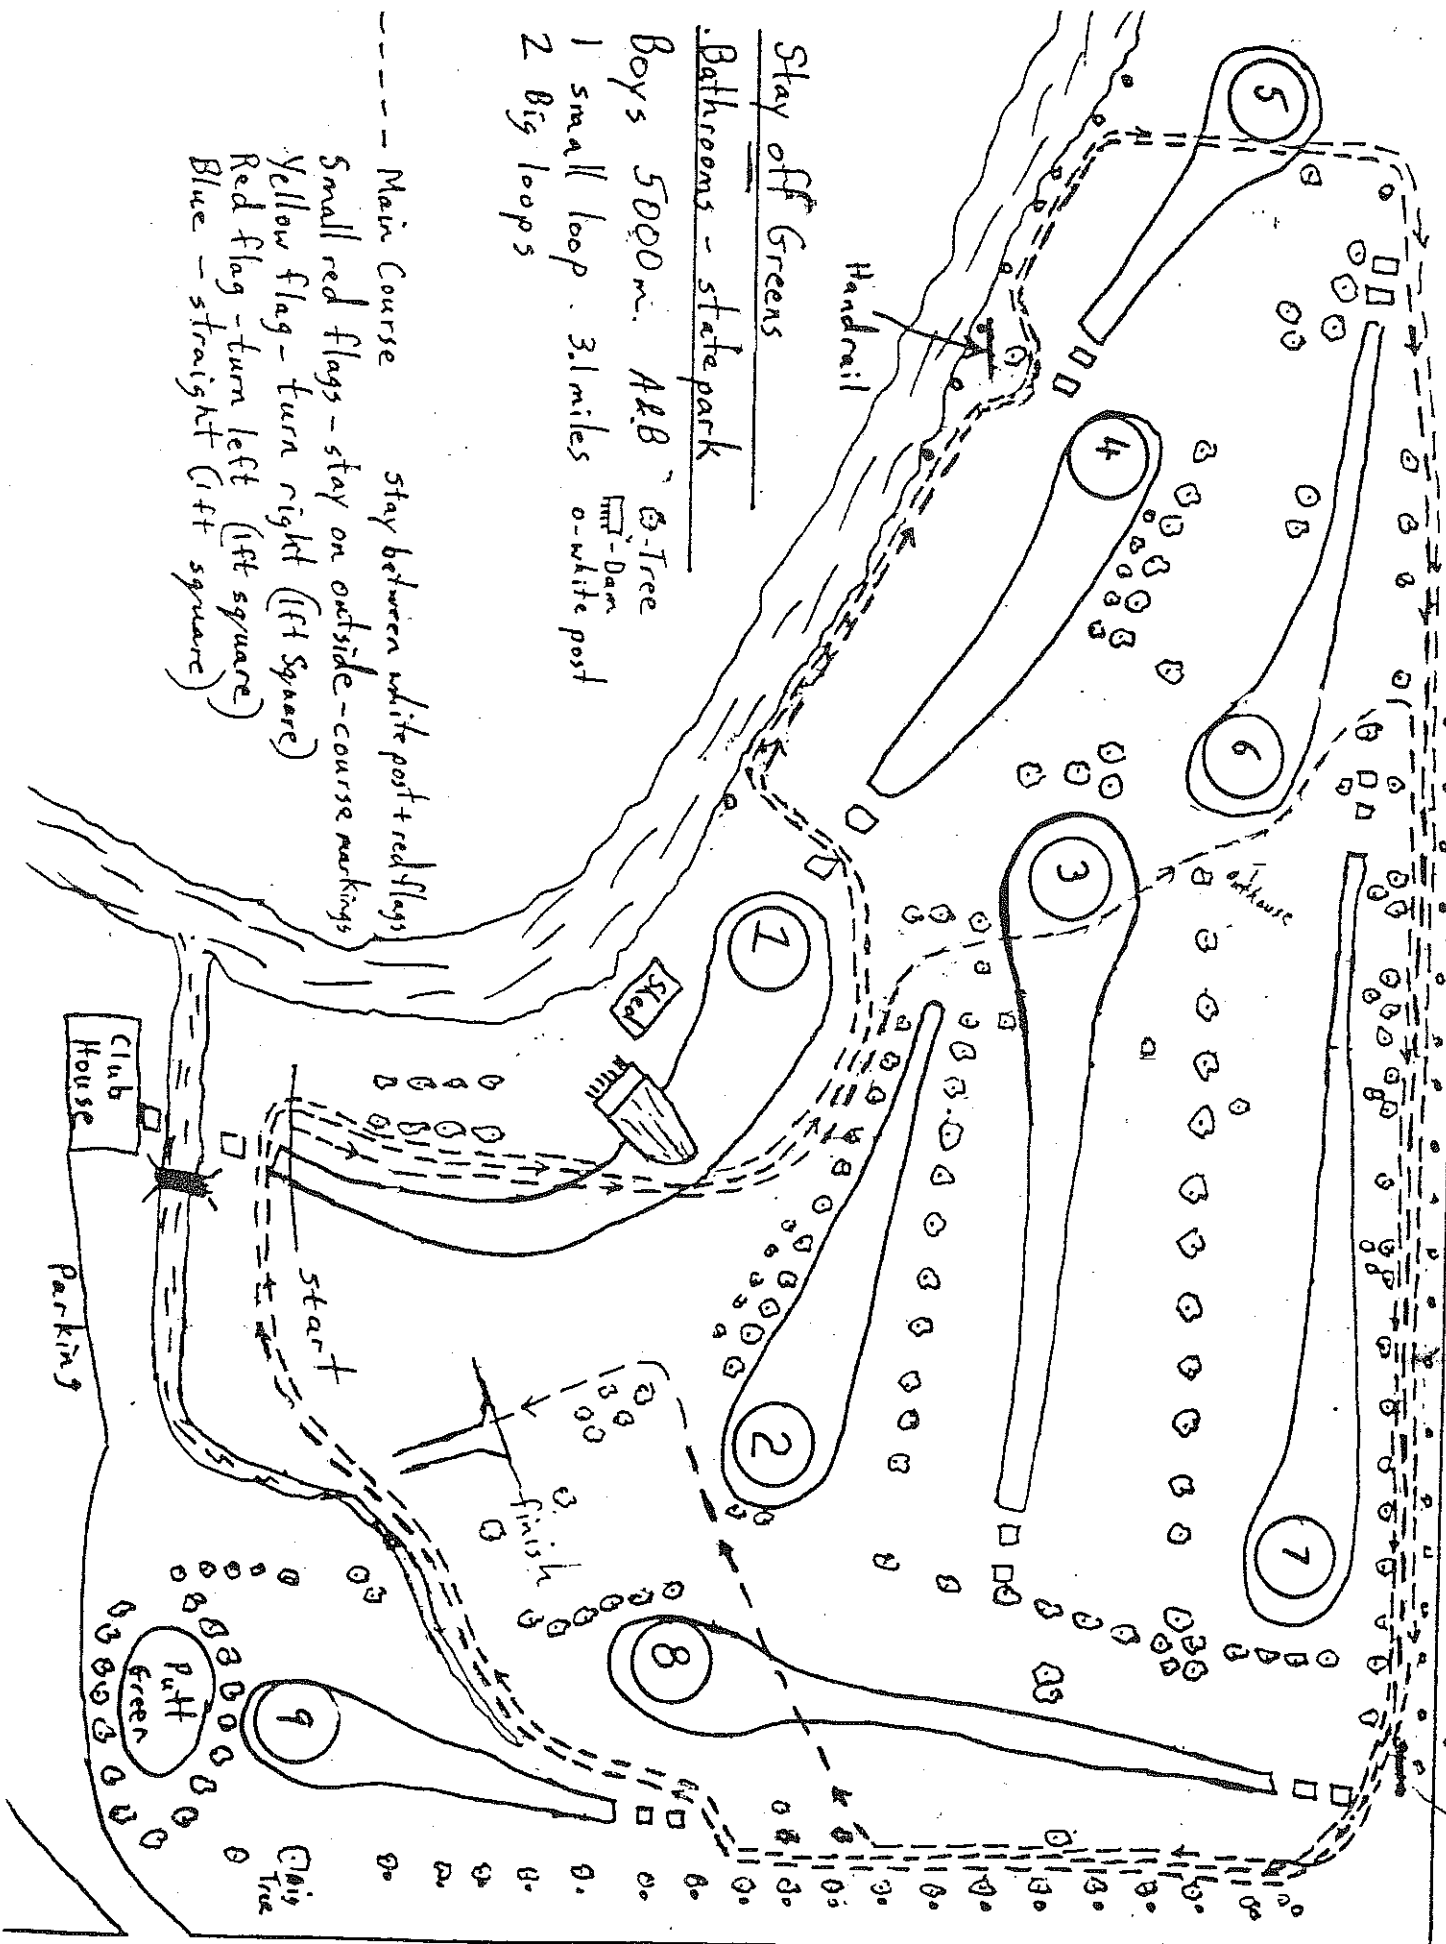 Stay off Greens
Bathrooms - state park
Boys 5000m. A&B
1 small loop - 3.1 miles
2 Big loops
-Tree
-Dam
o-white post
---- Main Course
stay between white post + red flags
Small red flags - stay on outside - course markings
Yellow flag - turn right (1ft Square)
Red flag - turn left (1ft square)
Blue - straight (1ft square)
Handrail
5
4
6
3
outhouse
1
Shed
Club
House
Parking
start
2
finish
7
8
9
Putt
Green
Big
Tree